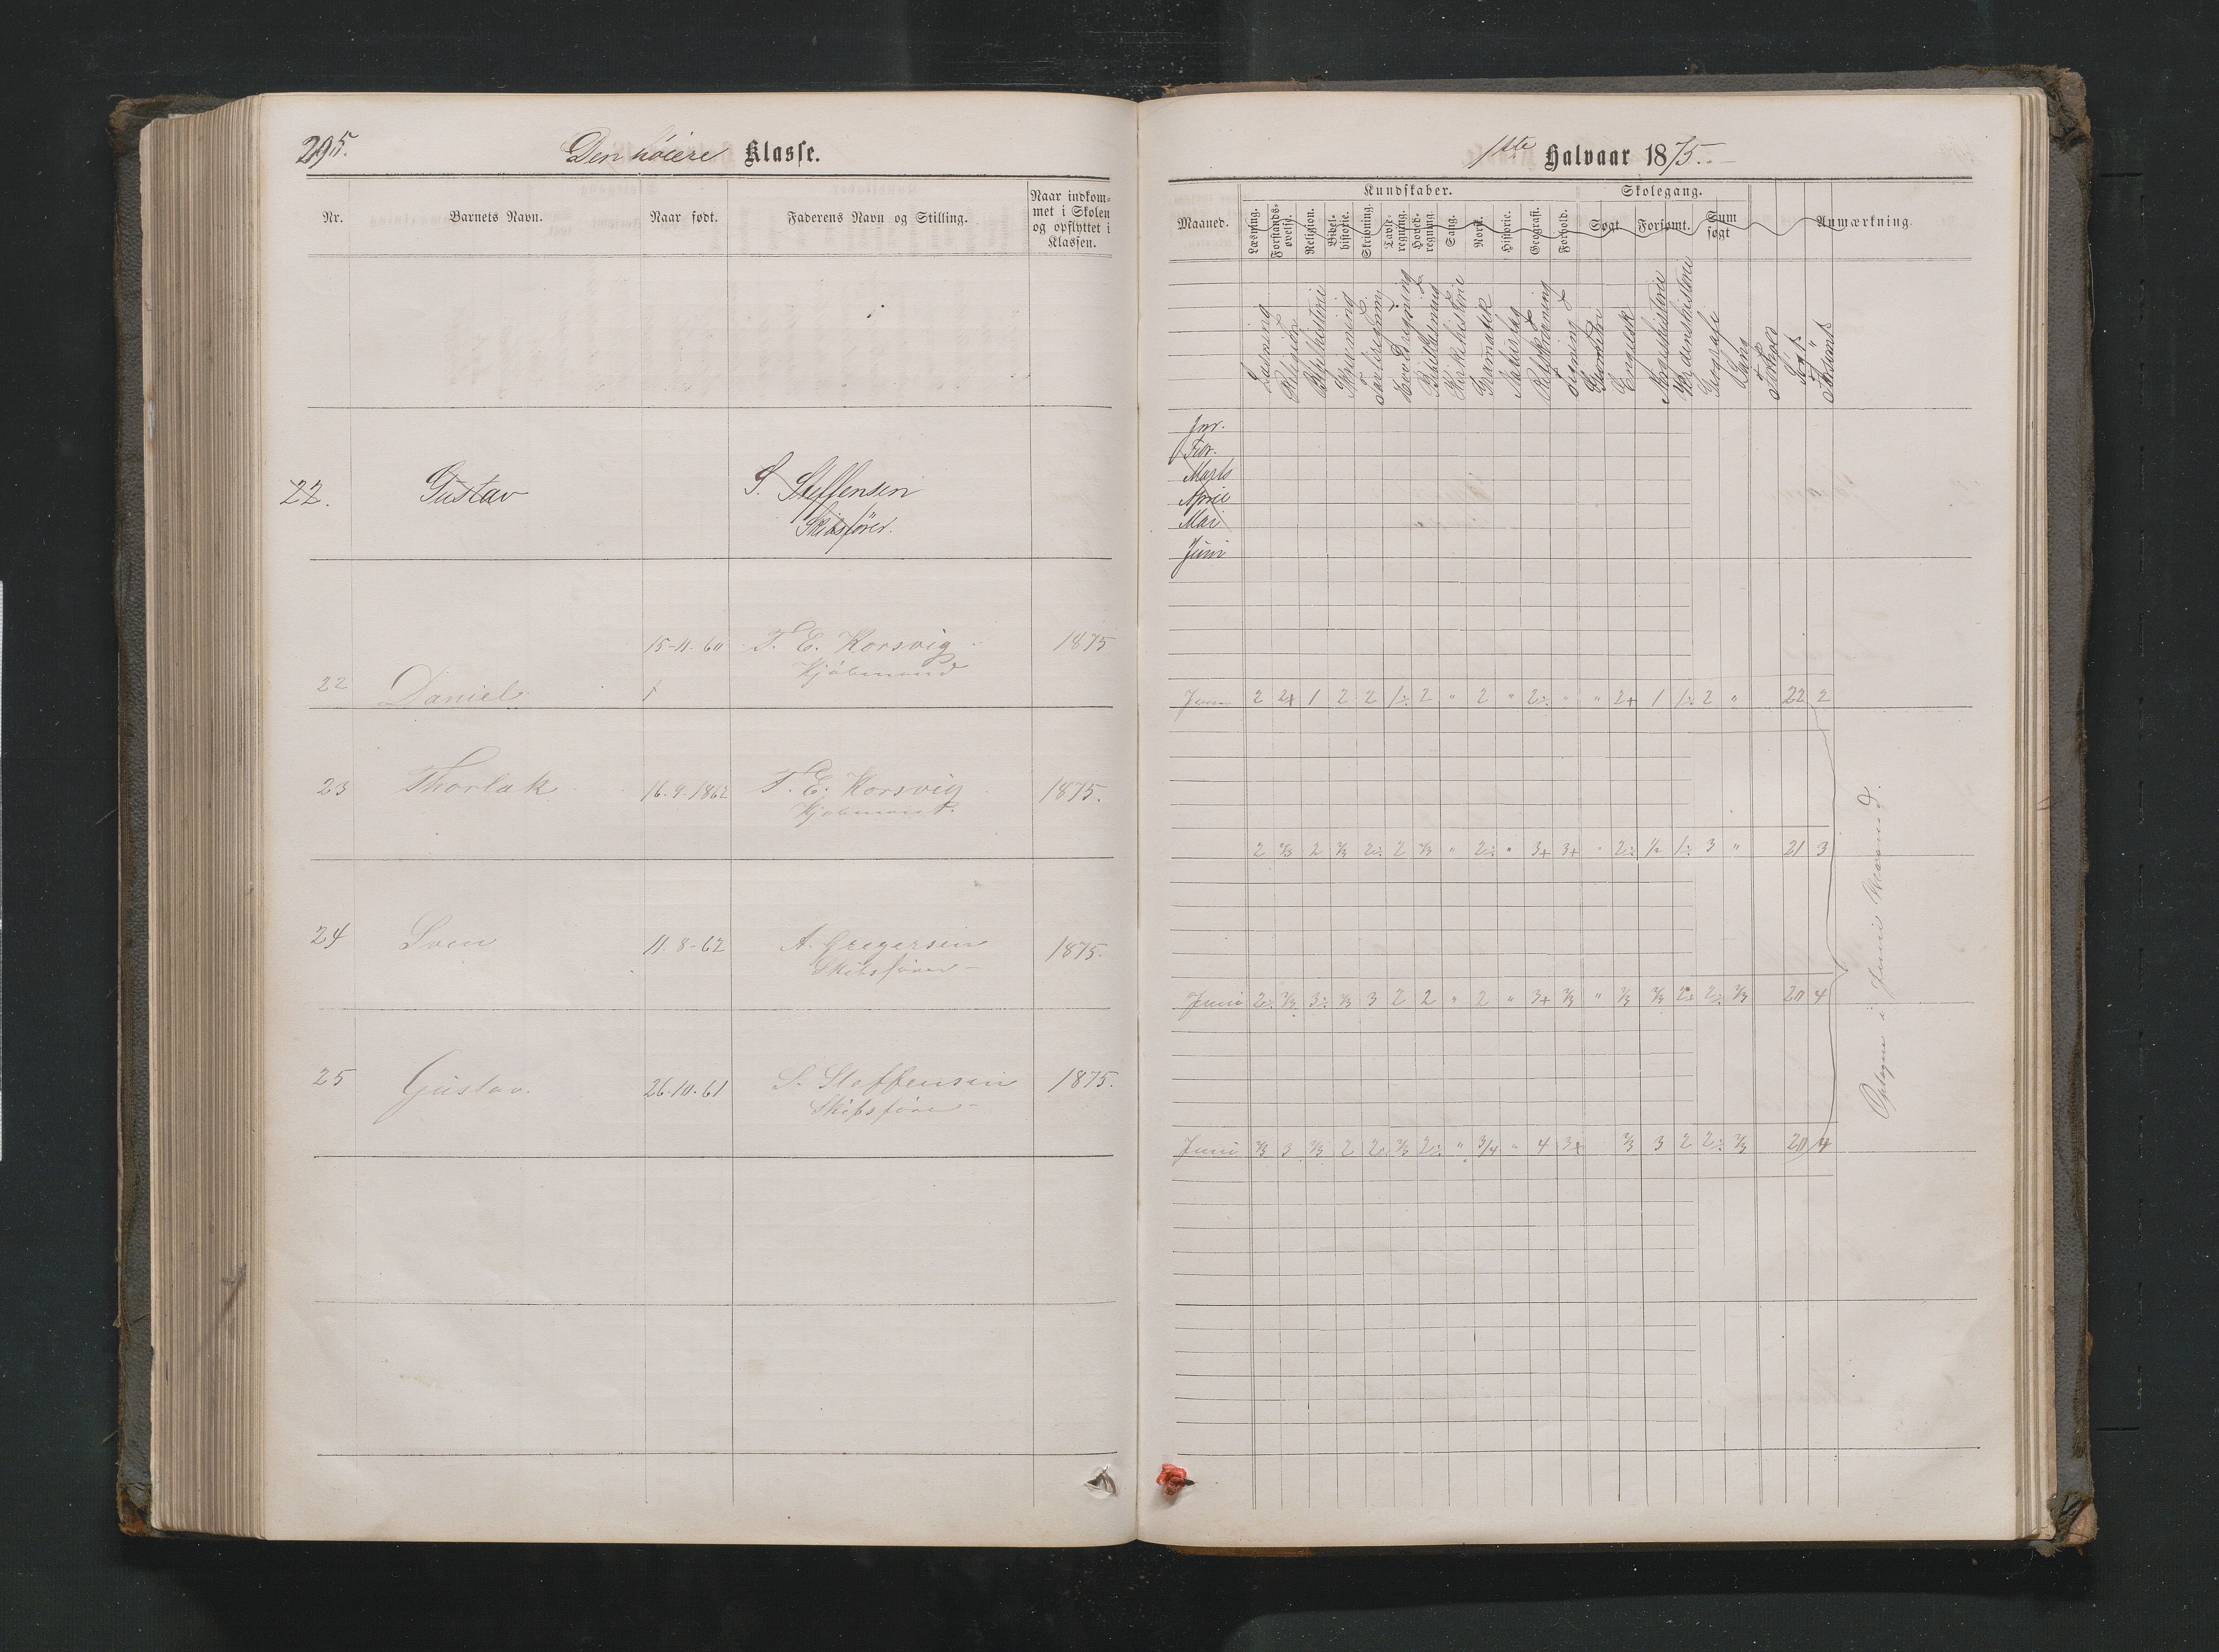 295.
Den höiere Klasse.
Nr. Barnets Navn. Naar født. Faderens Navn og Stilling. Naar indkom-
met i Skolen
og opflyttet i
Klassen.
22. Gustav S. Steffensen
Skibsfører.
15-11-60 T. E. Korsvig 1875
22 Daniel Kjøbmand
23 Thorlak 16.9.1862 T. E. Korsvig 1875.
Kjøbmand.
24 Sven 11-8-62 A. Gregersen 1875.
Skibsfører
25 Gustav. 26.10.61 S. Steffensen 1875.
Skibsfører
1ste Halvaar 1875.
Kundskaber. Skolegang.
Maaned. Læsning. Forstands-
øvelse. Religion. Bibel-
historie. Skrivning. Tavle-
regning. Hoved-
regning. Sang. Norsk. Historie. Geografi. Forhold. Søgt. Forsømt. Sum
søgt Anmærkning.
Læsning Religion Bibelhistorie Skrivning Tavleregning Hovedregning Kirkehistorie Gramatik Retskrivning Tegning Geometri Engelsk Norgeshistorie Verdenshistorie Geografi Sang Forhold Søgt Forsømt
Jnr.
Febr.
Marts
April
Mai
Juni
Juni 2 2+ 1 2 2 1÷ 2 " 2 " 2÷ " " 2+ 1 1÷ 2 " 22 2
2 2/3 2 2/3 2÷ 2 2/3 " 2÷ " 3+ 3+ " 2÷ 1/2 1÷ 3 " 21 3
Juni 2÷ 2/3 3÷ 2/3 3 2 2 " 2 " 3+ 2/3 " 2/3 2/3 2+ 2÷ 2/3 20 4
Juni 2/3 3 2/3 2 2÷ 2/3 2÷ " 3/4 " 4 3+ 2/3 3 2 2÷ 2/3 20 4
Optagne i Juni Maaned.